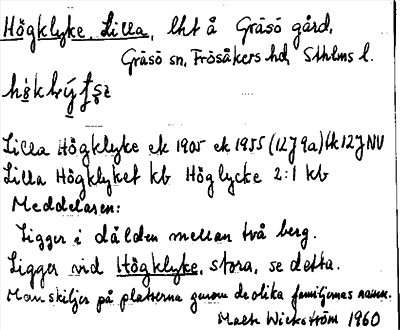 Högklyke, Lilla, lht å Gräsö gård,
Gräsö sn, Frösåkers hd, Sthlms l.
Lilla Högklyke ek 1905 ek 1955 (12J 9a) fk 12J NV
Lilla Högklyket kb Höglycke 2:1 kb
Meddelaren:
Ligger i dälden mellan två berg.
Ligger vid Högklyke, stora, se detta.
Man skiljer på platserna genom de olika familjernas namn.
Malte Wickström 1960